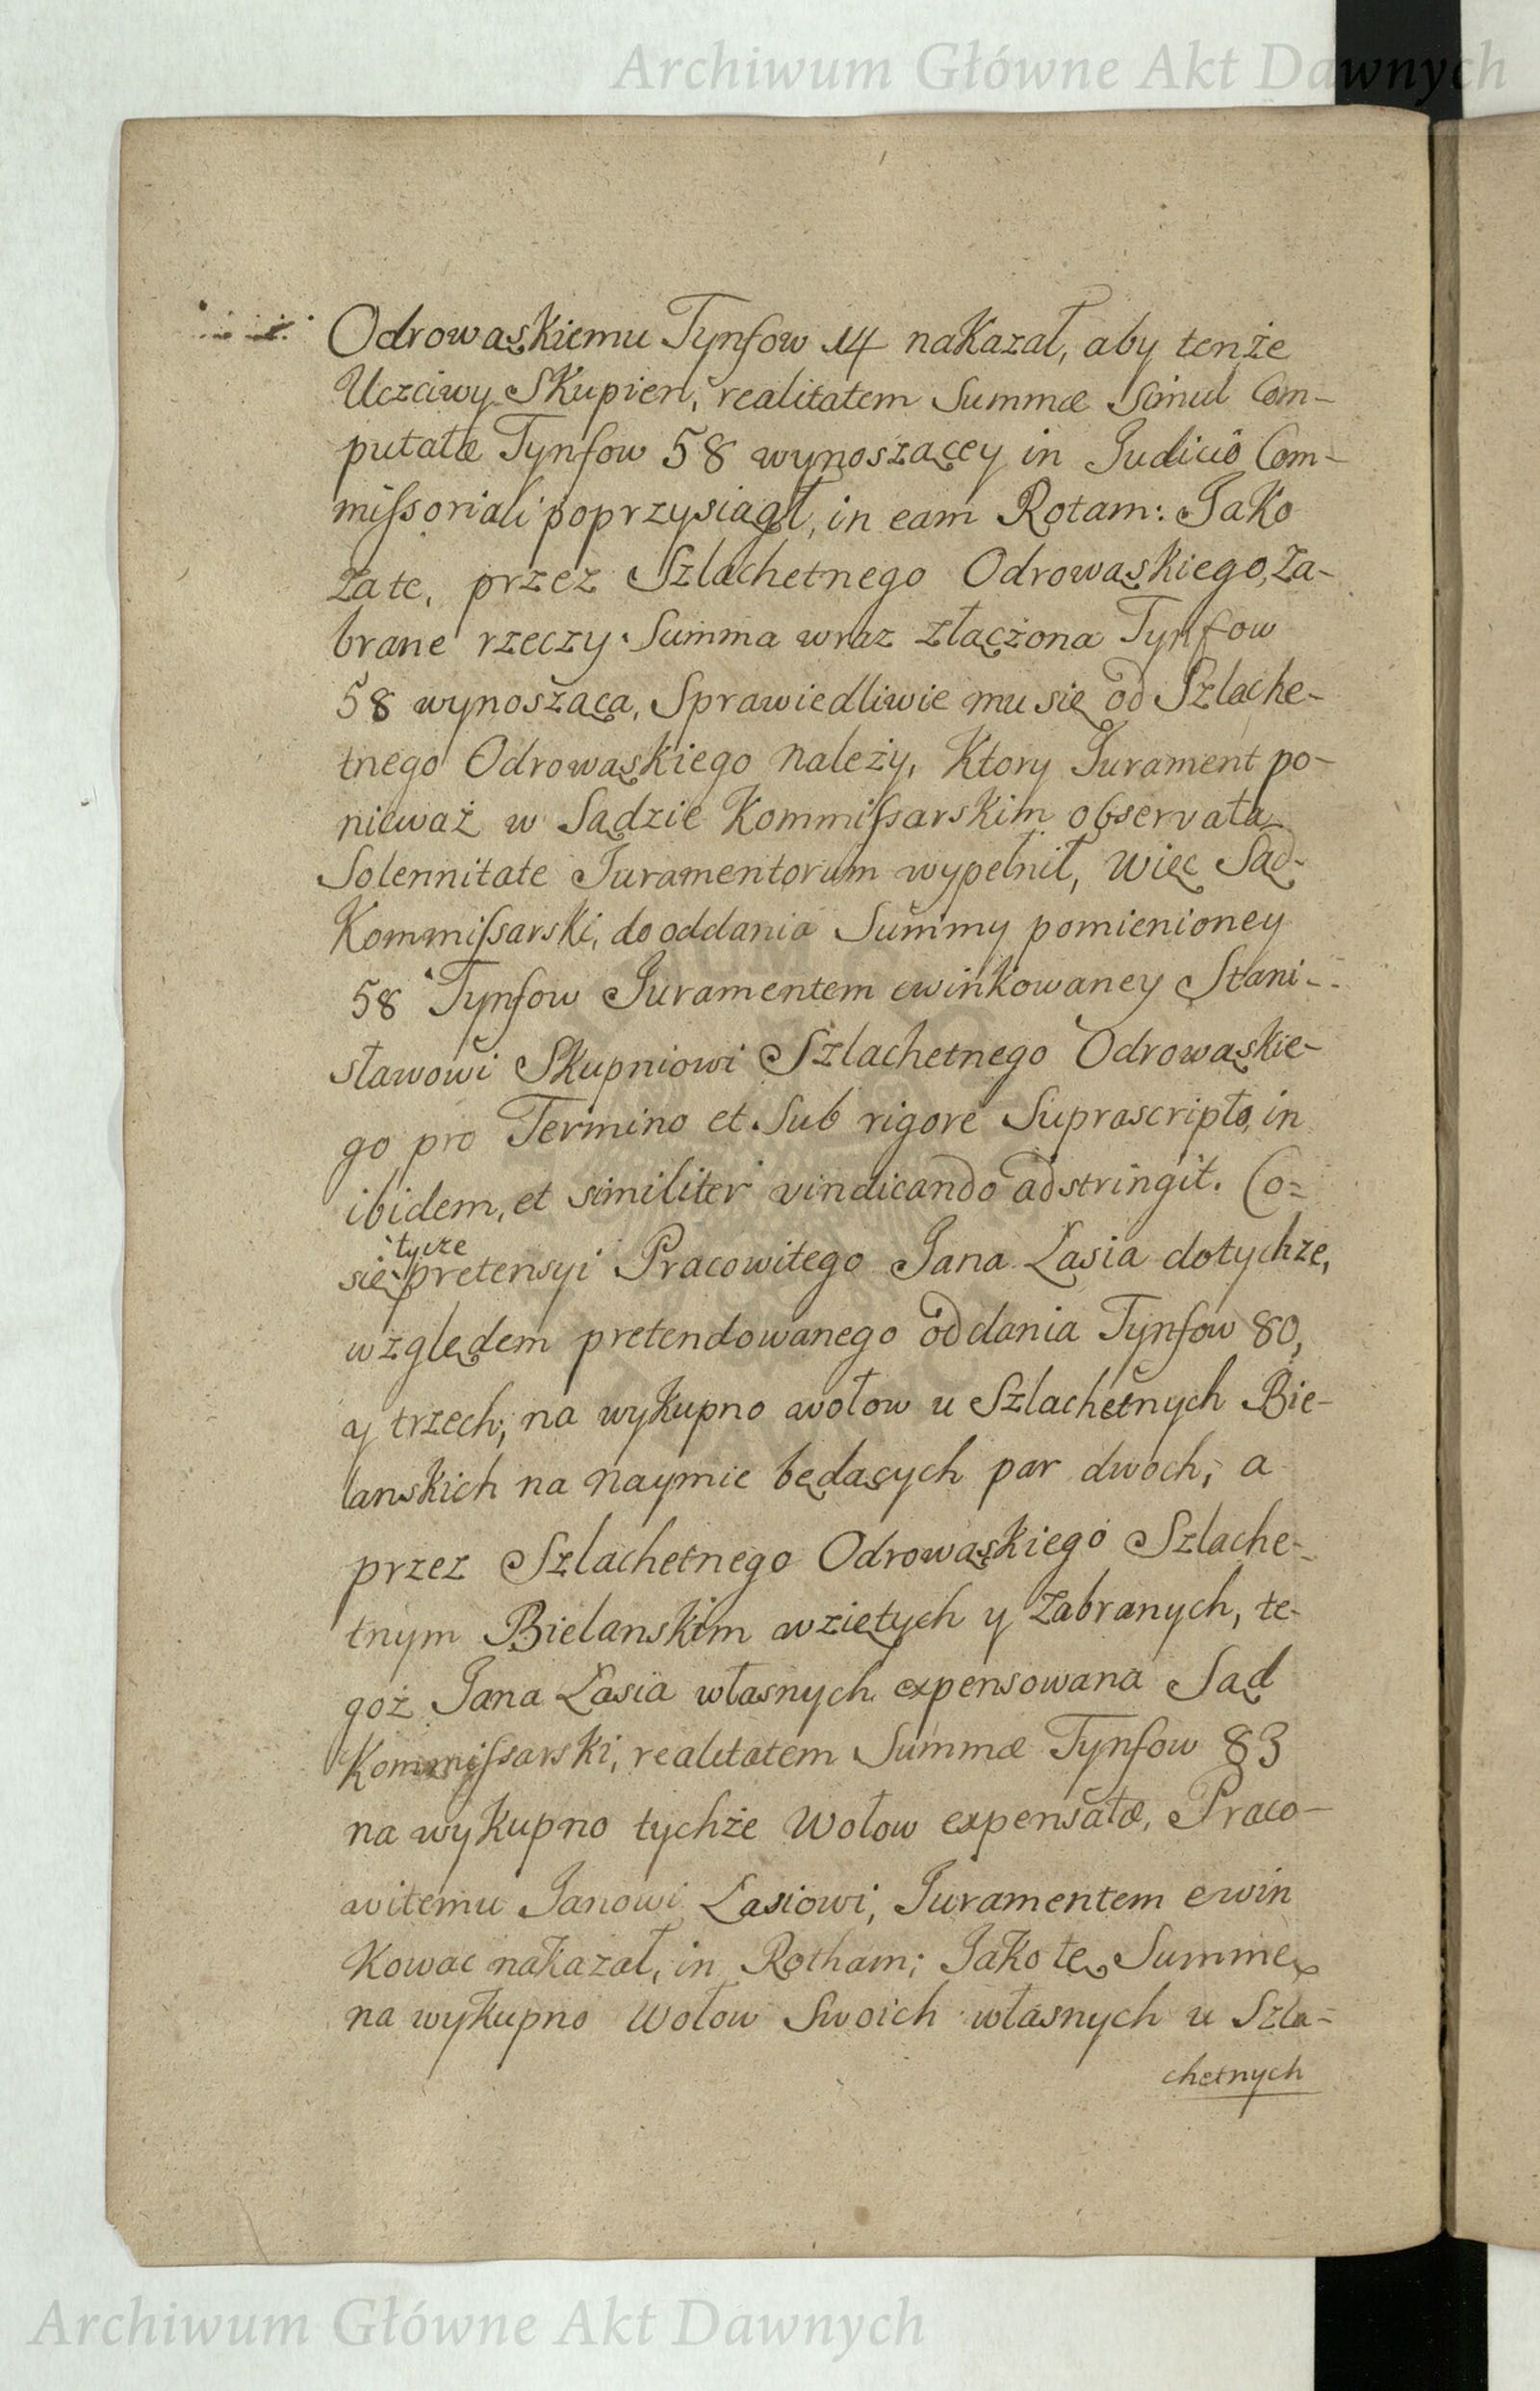 Archiwum Główne Akt Dawnych
Odrowąskiemu Tynfow 14 nakazał, aby tenże
Uczciwy Skupien, realitatem Summæ Simul Com-
putatæ Tynfow 58 wynoszącey in Judicio Com-
missoriali poprzysiągł, in eam Rotam: Jako
za te, przez Szlachetnego Odrowąskiego, za-
brane rzeczy Summa wraz złączona Tynfow
58 wynosząca, Sprawiedliwie mu się od Szlache-
tnego Odrowąskiego należy, Ktory Jurament po-
nieważ w Sądzie Kommissarskim observata
Solennitate Juramentorum wypełnił, więc Sąd
Kommissarski, do oddania Summy pomienioney
58 Tynfow Juramentem ewinkowaney Stani-
sławowi Skupniowi Szlachetnego Odrowąskie-
go pro Termino et Sub rigore Suprascripto, in
ibidem, et similiter vindicando adstringit. Co=
tycze
się pretensyi Pracowitego Jana Łasia dotychże,
względem pretendowanego oddania Tynfow 80,
y trzech, na wykupno wołow u Szlachetnych Bie-
lanskich na naymie będących par dwoch, a
przez Szlachetnego Odrowąskiego Szlache-
tnym Bielanskim wziętych y zabranych, te-
goż Jana Łasia własnych expensowana Sąd
Kommissarski, realitatem Summæ Tynfow 83
na wykupno tychże Wołow expensatæ, Praco-
witemu Janowi Łasiowi, Juramentem ewin
kowac nakazał, in Rotham; Jako tę Summę
na wykupno Wołow Swoich własnych u Szla-
chetnych
Archiwum Główne Akt Dawnych